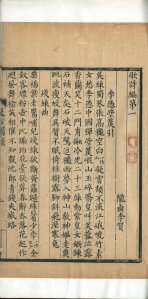 歌詩編第一
隴西李賀
李憑箜篌引
吳絲蜀桐張高秋空白凝雲頹不流江娥啼竹素
女愁李憑中國彈箜篌崑山玉碎鳳凰叫芙蓉泣露
香蘭笑十二門前融冷光二十三絲動紫皇女媧鍊
石補天處石破天驚逗秋雨夢入神山教神嫗老魚
跳波瘦蛟舞吳質不眠倚桂樹露腳斜飛濕寒兔
殘絲曲
垂楊葉老鶯哺兒殘絲欲斷黃蜂歸綠鬢少年金
釵客縹粉壺中沉琥珀花臺欲暮春辭去落花起作
迴風舞榆莢相催不知數沈郎青錢夾城路